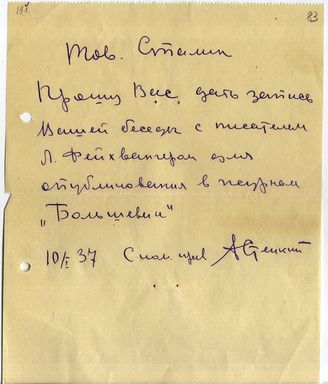 197.
83
Тов. Сталин
Прошу Вас дать запись
Вашей беседы с писателем
Л. Фейхвангером для
опубликования в журнал
„Большевик"
10/I 37 С ком. прив АСтецкий